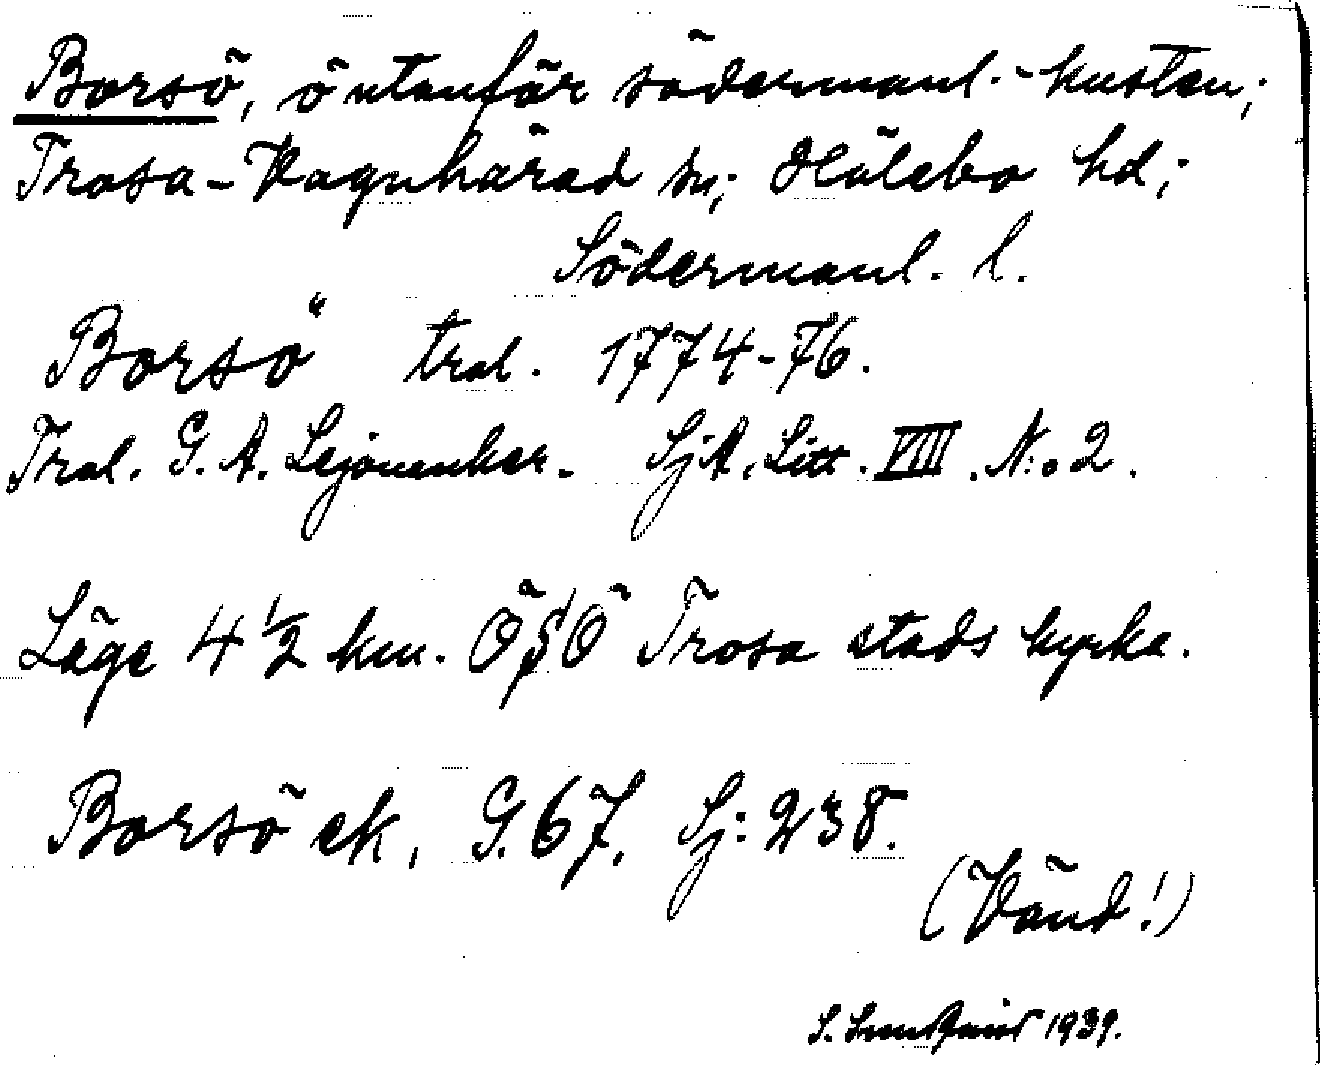 Borsö, ö utanför södermanl.-kusten;
Trosa-Vagnhärad sn; Hölebo hd;
Södermanl. l.
Borsö tral. 1774-76.
Tral. G. A. Lejonanker. SjA. Litt. VIII. N:o 2.
Läge 4 1/2 km. ÖSÖ Trosa stads kyrka.
Borsö ek, G. 67, Sj: 238.
(Vänd!)
S. 1939.